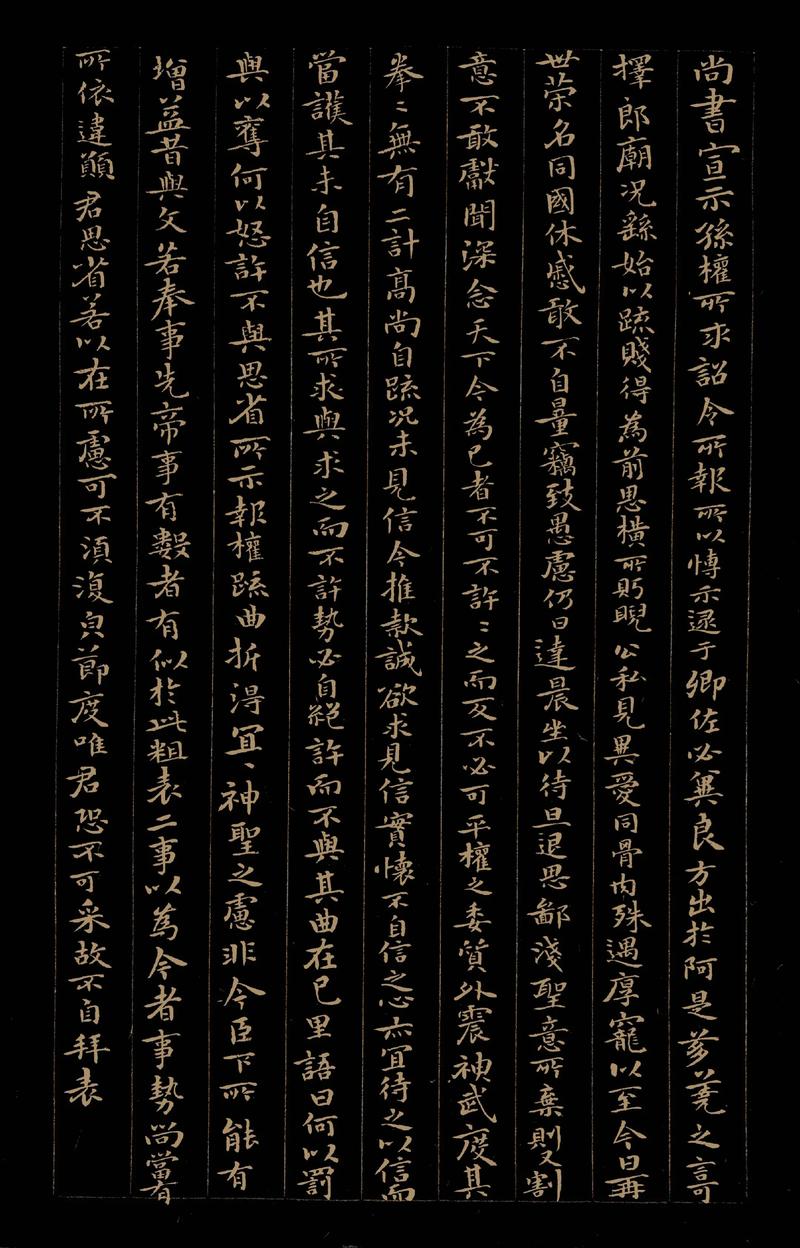 尚書宣示孫權所求詔令所報所以博示逮于卿佐必冀良方出於阿是芻蕘之言可
擇郎廟况繇始以疏賤得為前恩橫所眄睨公私見異愛同骨肉殊遇厚寵以至今日再
世荣名同國休慼敢不自量竊致愚慮仍日達晨坐以待旦退思鄙淺聖意所棄則又割
意不敢獻聞深念天下今為已平權之委質外震神武度其
拳〻無有二計高尚自疏况未見信今推款誠欲求見信實懷不自信之心亦冝待之以信而
當護其未自信也其所求與求之而不許勢必自絕許而不與其曲在已里語曰何以罰
與以奪何以怒許不與思省所示報權疏曲折得冝〻神聖之慮非今臣下所能有
增益昔與文若奉事先帝事有數者有似於此粗表二事以為今者事勢尚當有
所依違願君思省若以在所慮可不須復皃節度唯君恐不可采故不自拜表